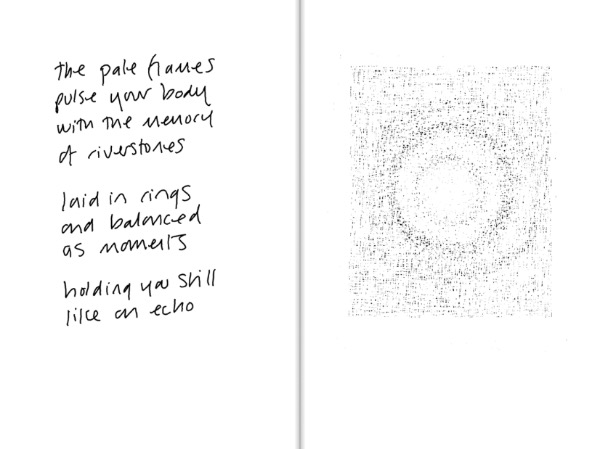 the pale frames
pulse your body
with the memory
of riverstones
laid in rings
and balanced
as moments
holding you still
like an echo